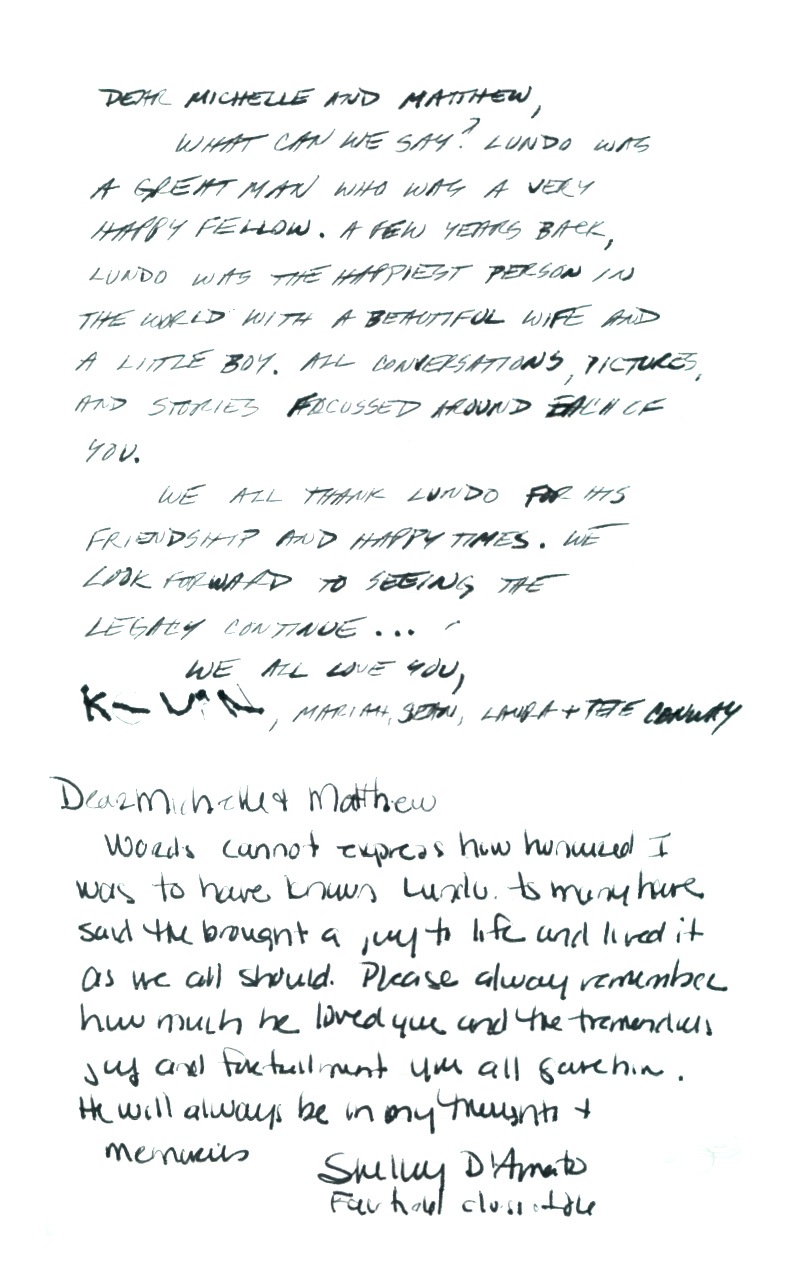 DEAR MICHELLE AND MATTHEW,
WHAT CAN WE SAY? LUNDO WAS
A GREAT MAN WHO WAS A VERY
HAPPY FELLOW. A FEW YEARS BACK,
LUNDO WAS THE HAPPIEST PERSON IN
THE WORLD WITH A BEAUTIFUL WIFE AND
A LITTLE BOY. ALL CONVERSATIONS, PICTURES,
AND STORIES FOCUSSED AROUND EACH OF
YOU.
WE ALL THANK LUNDO FOR HIS
FRIENDSHIP AND HAPPY TIMES. WE
LOOK FORWARD TO SEEING THE
LEGACY CONTINUE...
WE ALL LOVE YOU,
KEVIN, MARIAH, SEAN, LAURA + PETE CONWAY
Dear Michelle & Matthew
Words cannot express how honored I
was to have known Lundo. As many have
said he brought a joy to life and lived it
as we all should. Please always remember
how much he loved you and the tremendous
joy and you all gave him.
He will always be in my thoughts +
memories
Shelley D'Amato